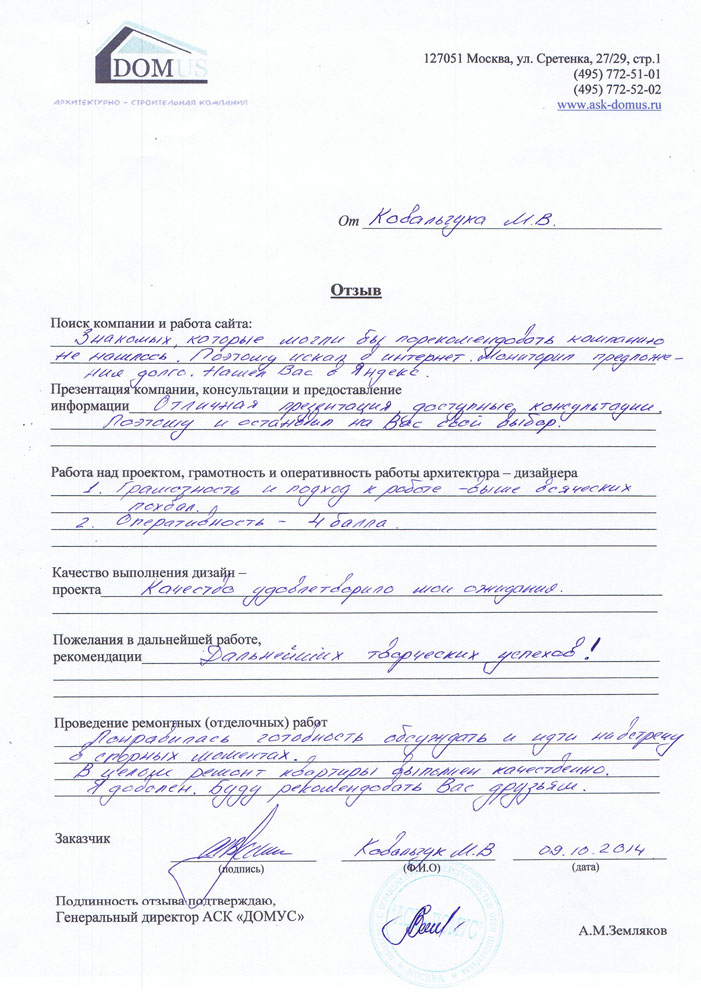 DOMUS
АРХИТЕКТУРНО - СТРОИТЕЛЬНАЯ КОМПАНИЯ
127051 Москва, ул. Сретенка, 27/29, стр.1
(495) 772-51-01
(495) 772-52-02
www.ask-domus.ru
От Ковальчука М.В.
Отзыв
Поиск компании и работа сайта:
Знакомых, которые могли бы порекомендовать компанию
не нашлось. Поэтому искал в интернет. Мониторил предложе-
ния долго. Нашел Вас в Яндекс.
Презентация компании, консультации и предоставление
информации Отличная презентация, доступные консультации.
Поэтому и остановил на Вас свой выбор.
Работа над проектом, грамотность и оперативность работы архитектора – дизайнера
1. Грамотность и подход к работе - выше всяческих
похвал.
2. Оперативность - 4 балла.
Качество выполнения дизайн –
проекта Качество удовлетворило мои ожидания.
Пожелания в дальнейшей работе,
рекомендации Дальнейших творческих успехов!
Проведение ремонтных (отделочных) работ
Понравилась готовность обсуждать и идти навстречу
в спорных моментах.
В целом ремонт квартиры выполнен качественно.
Я доволен. Буду рекомендовать Вас друзьям.
Заказчик Ковальчук М.В 09.10.2014
(подпись) (Ф.И.О) (дата)
Подлинность отзыва подтверждаю,
Генеральный директор АСК «ДОМУС»
А.М.Земляков